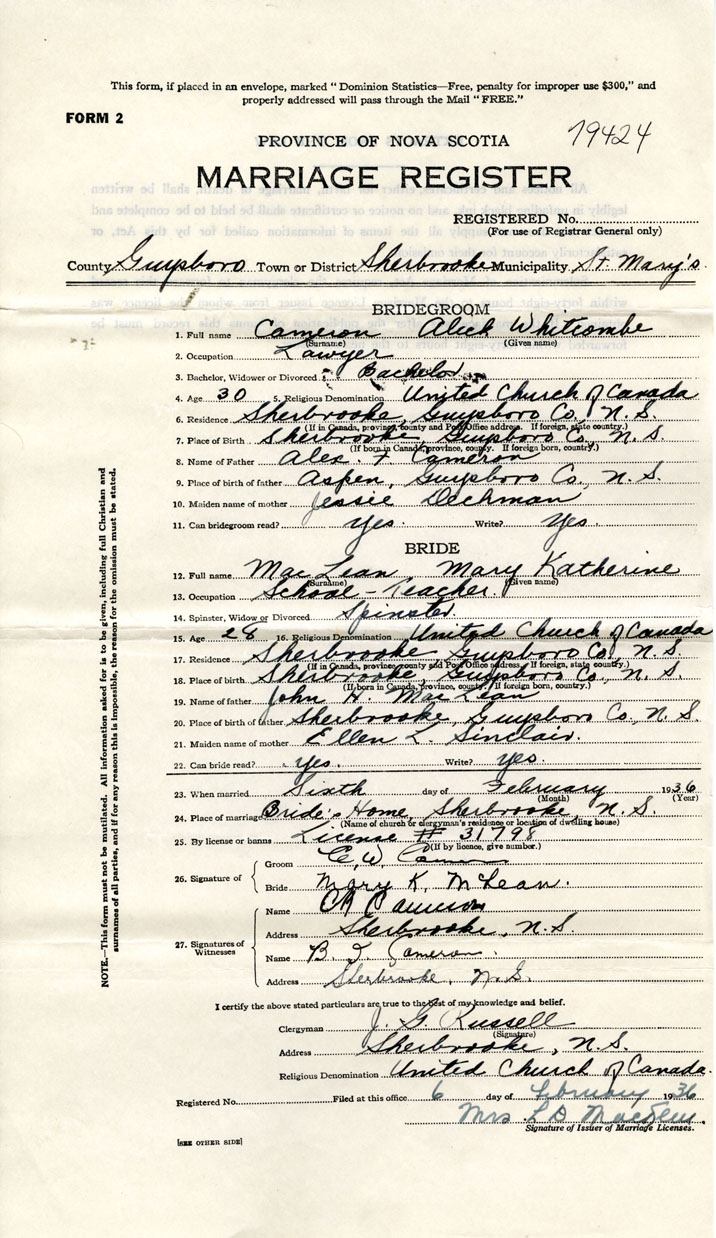 This form, if placed in an envelope, marked "Dominion Statistics—Free, penalty for improper use $300," and
properly addressed will pass through the Mail "FREE."
FORM 2
PROVINCE OF NOVA SCOTIA
19424
MARRIAGE REGISTER
REGISTERED No.
(For use of Registrar General only)
County Guysboro Town or District Sherbrooke Municipality St. Mary's
BRIDEGROOM
1. Full name Cameron Alick Whitcombe
(Surname) (Given name)
2. Occupation Lawyer
3. Bachelor, Widower or Divorced Bachelor
4. Age 30 5. Religious Denomination United Church of Canada
6. Residence Sherbrooke, Guysboro Co., N. S.
(If in Canada, province, county and Post Office address. If foreign, state country.)
7. Place of Birth Sherbrooke, Guysboro Co., N. S.
(If born in Canada, province, county. If foreign born, country.)
8. Name of Father Alex. F. Cameron
9. Place of birth of father Aspen, Guysboro Co., N. S.
10. Maiden name of mother Jessie Deckman
11. Can bridegroom read? Yes. Write? Yes.
BRIDE
12. Full name MacLean Mary Katherine
(Surname) (Given name)
13. Occupation School-Teacher.
14. Spinster, Widow or Divorced Spinster
15. Age 28 16. Religious Denomination United Church of Canada
17. Residence Sherbrooke Guysboro Co., N. S.
(If in Canada, province, county and Post Office address. If foreign, state country.)
18. Place of birth Sherbrooke, Guysboro Co., N. S.
(If born in Canada, province, county. If foreign born, country.)
19. Name of father John H. MacLean
20. Place of birth of father Sherbrooke, Guysboro Co., N. S.
21. Maiden name of mother Ellen L. Sinclair.
22. Can bride read? Yes. Write? Yes.
23. When married Sixth day of February 1936
(Month) (Year)
24. Place of marriage Bride's Home, Sherbrooke, N. S.
(Name of church or clergyman's residence or location of dwelling house)
25. By license or banns License # 31798
(If by licence, give number.)
26. Signature of
Groom
Bride Mary K. McLean.
27. Signatures of Witnesses
Name Cameron
Address Sherbrooke, N.S.
Name B. I. Cameron.
Address Sherbrooke, N.S.
I certify the above stated particulars are true to the best of my knowledge and belief.
Clergyman J. G. Russell
(Signature)
Address Sherbrooke, N.S.
Religious Denomination United Church of Canada.
Registered No. Filed at this office 6 day of February 1936
Mrs L D
Signature of Issuer of Marriage Licenses.
[SEE OTHER SIDE]
NOTE.—This form must not be mutilated. All information asked for is to be given, including full Christian and
surnames of all parties, and if for any reason this is impossible, the reason for the omission must be stated.